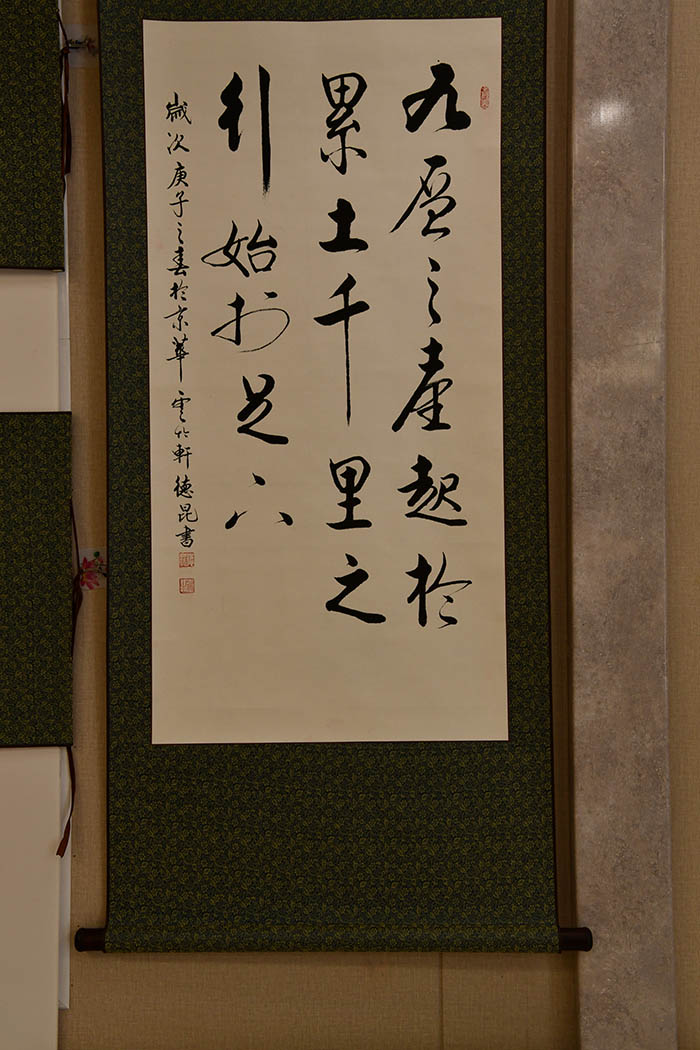 九層之臺起於
累土千里之
行始於足下
歲次庚子之春於京華雲竹軒德昆書